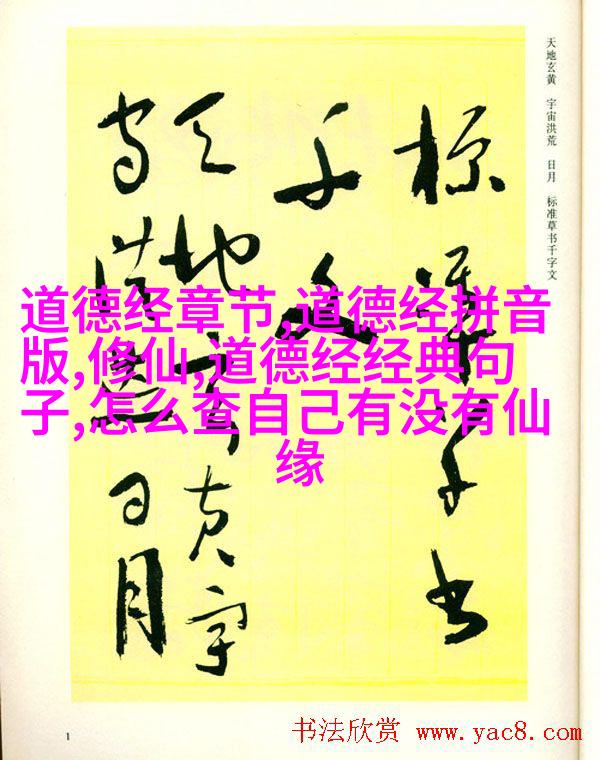 天地玄黄 宇宙洪荒 日月 标准草书千字文
標準草書
千文
天地玄黄宇
宙洪荒日月
道德经章节,道德经拼音
版,修仙,道德经经典句
子,怎么查自己有没有仙
缘
1
书法欣赏 www.yac8.com